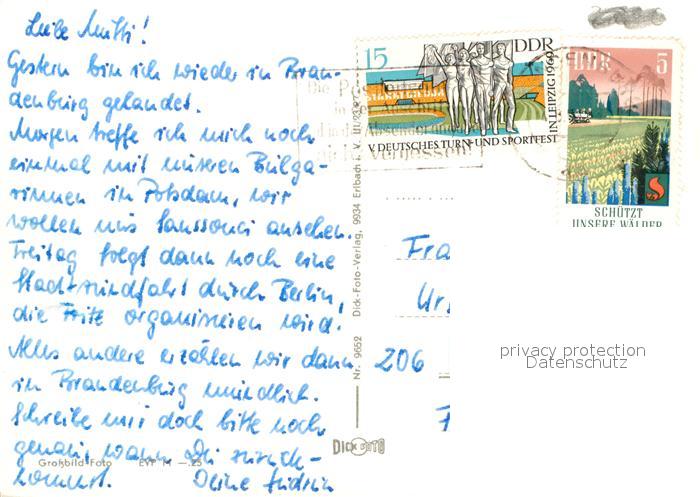 Liebe Mutti!
Gestern bin ich wieder in Bran-
denburg gelandet.
Morgen treffe ich mich noch
einmal mit unseren Bulga-
rinnen in Potsdam, wir
wollen uns Sanssouci ansehen.
Freitag folgt dann noch eine
Stadtrundfahrt durch Berlin,
die Fritz organisieren wird!
Alles andere erzählen wir dann
in Brandenburg mündlich.
Schreibe mir doch bitte noch
genau, wann Du zurück-
kommst. Deine
Großbild-Foto EVP M —.25
Nr. 9652 Dick-Foto-Verlag, 9934 Erlbach i. V.
DICK FOTO
15 DDR
STÄRKT DIE DDR
V. DEUTSCHES TURN- UND SPORTFEST
IN LEIPZIG 1969
DDR 5
SCHÜTZT
UNSERE WÄLDER
Die
vergessen!
Fra
Ur
206
privacy protection
Datenschutz